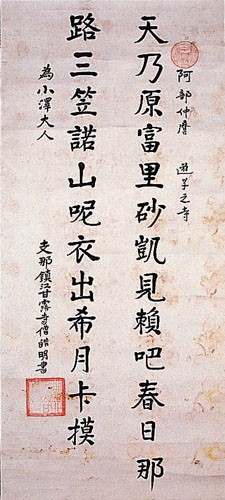 阿部仲麿　遊学之寺
天乃原富里砂凱見賴吧春日那
路三笠諾山呢衣出希月卡摸
為小澤大人
支那鎮江甘露寺僧皓明書